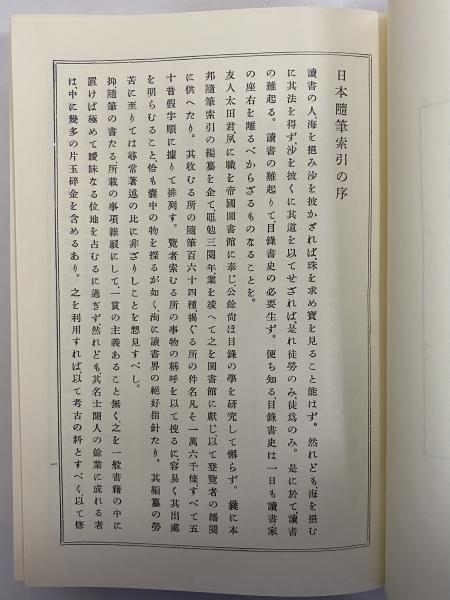 日本隨筆索引の序
讀書の人、海を挹み沙を披かざれば、珠を求め寶を見ること能はず。然れども、海を挹む
に其法を得ず、沙を披くに其道を以てせざれば、是れ徒勞のみ、徒爲のみ。是に於て、讀書
の難起る。讀書の難起りて、目錄書史の必要生ず。便ち知る、目錄書史は一日も讀書家
の座右を離るべからざるものなることを。
友人太田君夙に職を帝國圖書館に奉じ、公餘尙ほ目錄の學を硏究して懈らず。曩に本
邦隨筆索引の編纂を企て、黽勉三閱年業を竣へて之を圖書館に獻じ、以て登覽者の繙閱
に供へたり。其收むる所の隨筆百六十四種、揭ぐる所の件名凡そ一萬六千條、すべて五
十音假字順に據りて排列す。覽者索むる所の事物の稱呼を以て搜るに、容易く其出處
を明らむること、恰も嚢中の物を探るが如く、洵に讀書界の絕好指針たり。其編纂の勞
苦に至りては尋常著述の比に非ざりしことを想見すべし。
抑隨筆の書たる、所載の事項雜駁にして、一貫の主義あること無く、之を一般書籍の中に
置けば極めて曖昧なる位地を占むるに過ぎず、然れども、其名士聞人の餘業に成れる者
は、中に幾多の片玉碎金を含めるあり。之を利用すれば以て考古の料とすべく、以て修
一